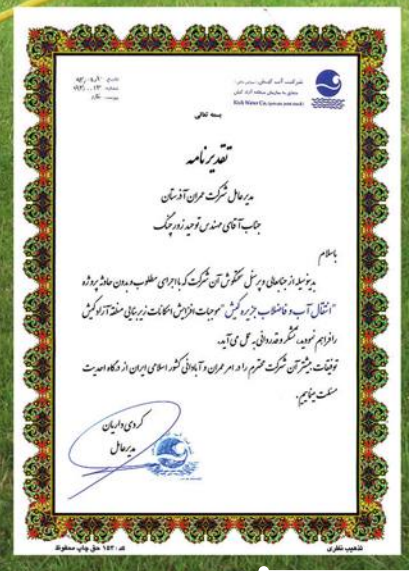 شرکت آب کیش (سهامی خاص)
متعلق به سازمان منطقه آزاد کیش
Kish Water Co. (private joint stock)
تاریخ:
شماره:
پیوست:
بسمه تعالی
تقدیرنامه
مدیرعامل شرکت عمران آذرستان
جناب آقای مهندس توحید زورچنگ
باسلام
بدینوسیله از جنابعالی و پرسنل سختکوش آن شرکت که با اجرای مطلوب و بدون حادثه پروژه
"انتقال آب و فاضلاب جزیره کیش" موجبات افزایش امکانات زیربنایی منطقه آزاد کیش
را فراهم نمودید، تشکر و قدردانی به عمل می آید.
توفیقات بیشتر آن شرکت محترم را در امر عمران و آبادانی کشور اسلامی ایران از درگاه احدیت
مسئلت مینماییم.
کردی داریان
مدیرعامل
تذهیب نظری
کد: ۱۵۲ حق چاپ محفوظ